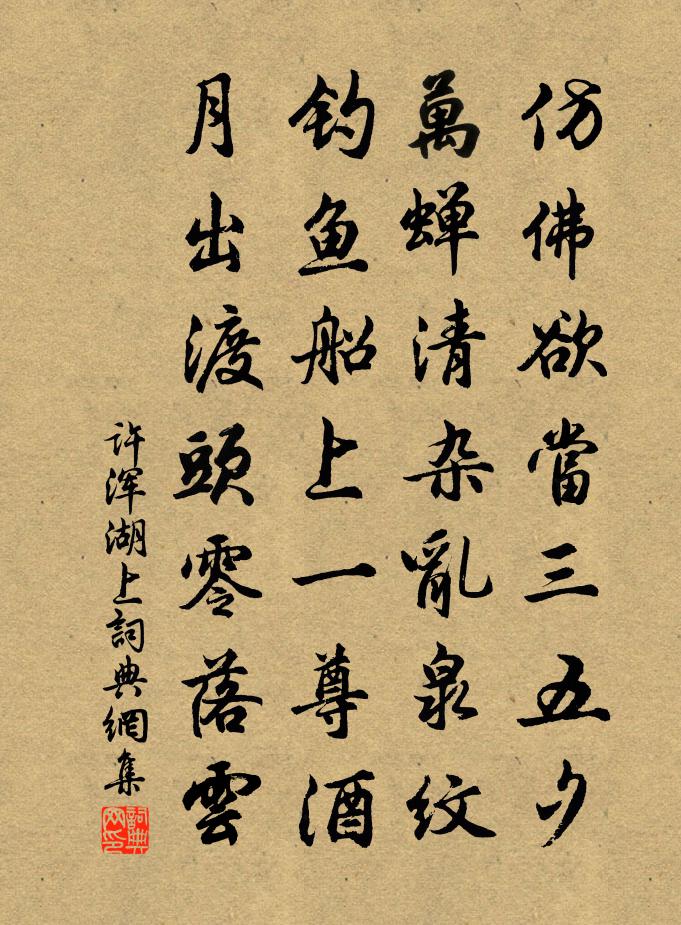 仿佛欲當三五夕
萬蝉清杂亂泉紋
钓鱼船上一尊酒
月出渡頭零落雲
许浑湖上詞典網集
詞典网印